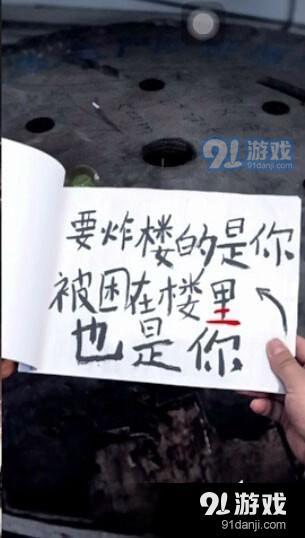 91游戏
91danji.com
要炸楼的是你
被困在楼里
也是你
91游戏
91danji.com